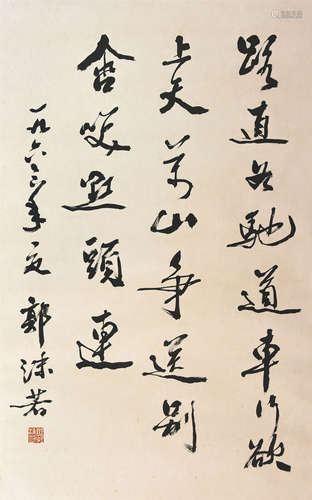 路直如馳道車行欲
上天万山爭送別
含咲點頭連
一九六三年夏
郭沫若